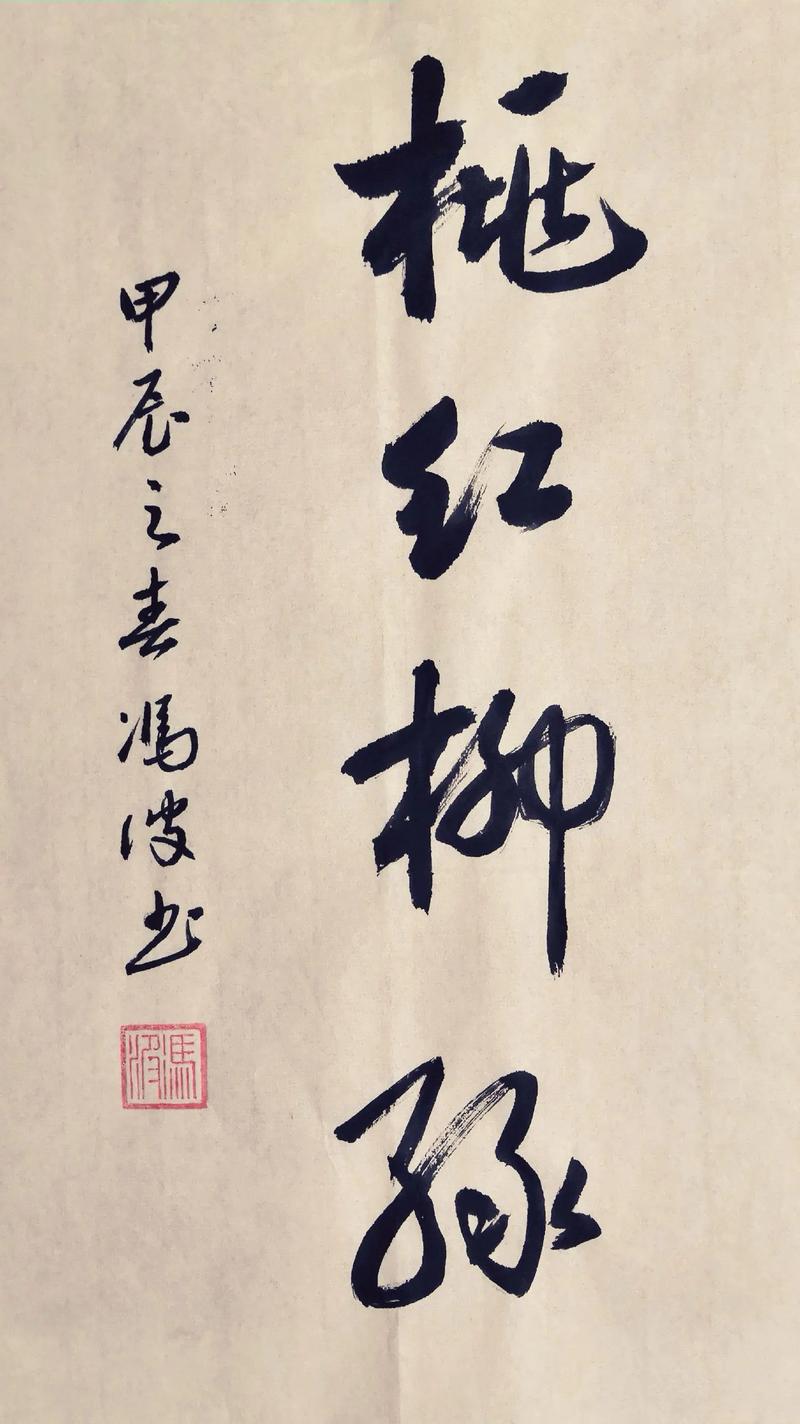 桃红柳绿
甲辰之春冯波书
冯波